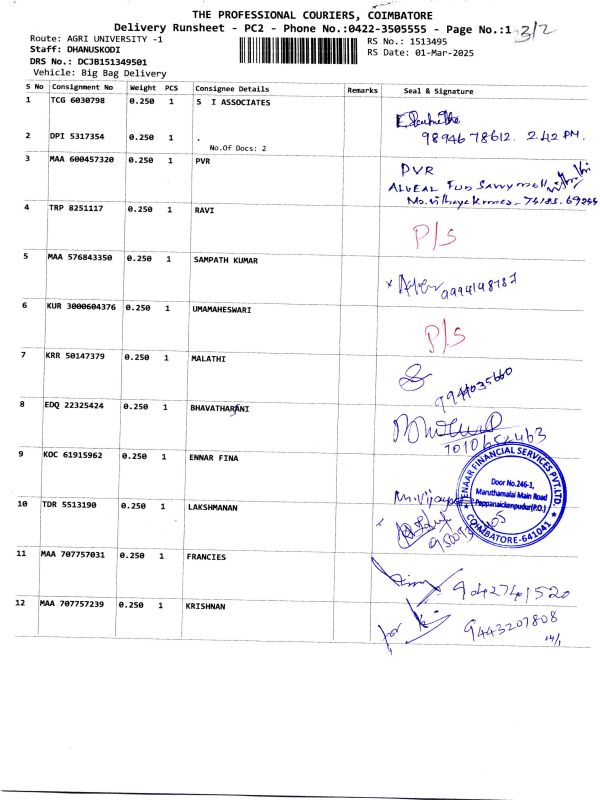 THE PROFESSIONAL COURIERS, COIMBATORE
Delivery Runsheet - PC2 - Phone No.:0422-3505555 - Page No.:1 3/2
Route: AGRI UNIVERSITY -1 RS No.: 1513495
Staff: DHANUSKODI RS Date: 01-Mar-2025
DRS No.: DCJB151349501
Vehicle: Big Bag Delivery
S No Consignment No Weight PCS Consignee Details Remarks Seal & Signature
1 TCG 6030798 0.250 1 S I ASSOCIATES
2 DPI 5317354 0.250 1 . 9894678612. 2.42 PM.
No.Of Docs: 2
3 MAA 600457320 0.250 1 PVR PVR
4 TRP 8251117 0.250 1 RAVI P/S
5 MAA 576843350 0.250 1 SAMPATH KUMAR
6 KUR 3000604376 0.250 1 UMAMAHESWARI P/S
7 KRR 50147379 0.250 1 MALATHI
8 EDQ 22325424 0.250 1 BHAVATHARANI
9 KOC 61915962 0.250 1 ENNAR FINA
ENAAR FINANCIAL SERVICES PVT.LTD.
Door No.246-1,
Maruthamalai Main Road
Pappanaickenpudur(P.O.)
COIMBATORE-641041
10 TDR 5513190 0.250 1 LAKSHMANAN
11 MAA 707757031 0.250 1 FRANCIES 9042741520
12 MAA 707757239 0.250 1 KRISHNAN for 9443207808